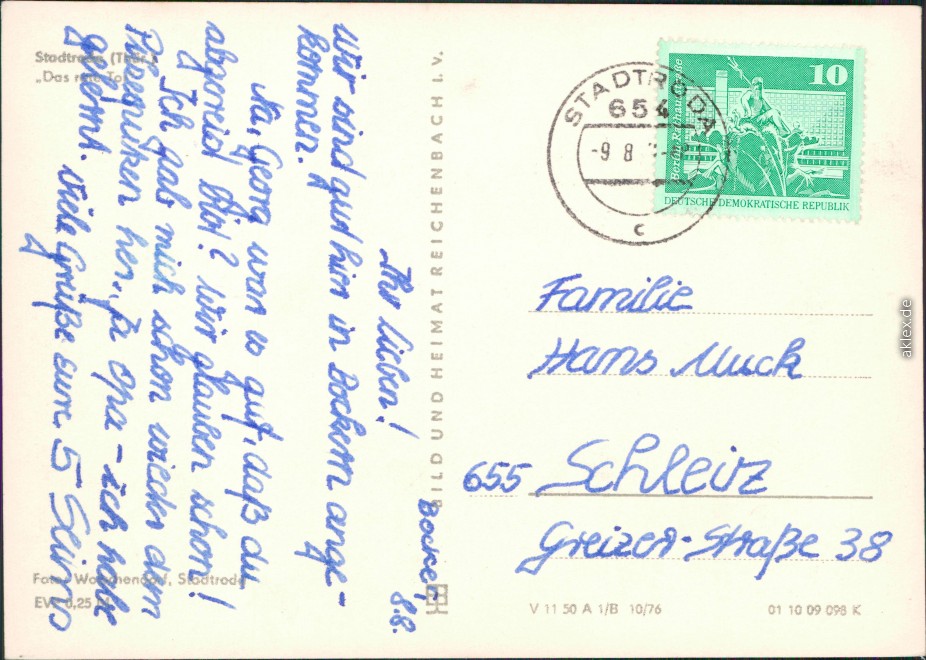 Stadtroda (Thür.)
„Das rote Tor"
Bocka, 8.8.
Ihr lieben!
Wir sind gut hier in Bockern ange-
kommen.
Na, Georg war es gut, daß du
abgereist bist? Wir glauben schon!
Ich hab mich schon wieder dem
her, ja Opa - ich habe
gelernt. Viele Grüße eure 5
BILD UND HEIMAT REICHENBACH I. V.
STADTRODA
654
-9 8
c
10
Berlin, Rathausstraße
DEUTSCHE DEMOKRATISCHE REPUBLIK
Familie
Hans Muck
655 Schleiz
Greizer-Straße 38
Foto: Stadtroda
EVP 0,25 M
V 11 50 A 1/B 10/76
01 10 09 098 K
aklex.de